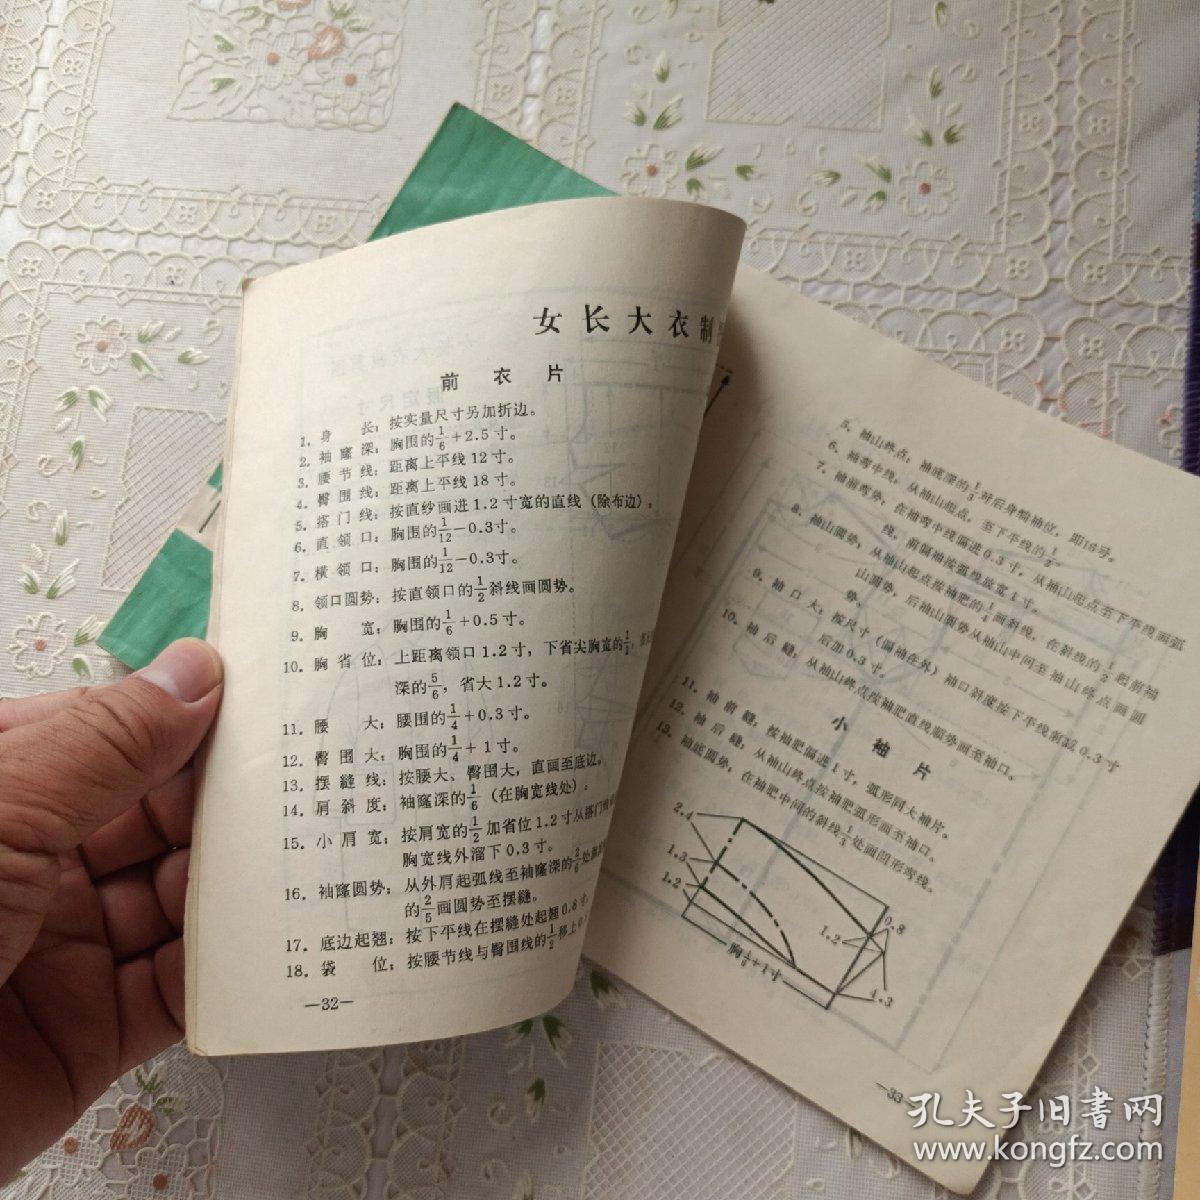 女长大衣制
前衣片
1．身　　长：按实量尺寸另加折边。
2．袖窿深：胸围的1/6＋2.5寸。
3．腰节线：距离上平线12寸。
4．臀围线：距离上平线18寸。
5．搭门线：按直纱画进1.2寸宽的直线（除布边）。
6．直领口：胸围的1/12－0.3寸。
7．横领口：胸围的1/12－0.3寸。
8．领口圆势：按直领口的1/2斜线画圆势。
9．胸　　宽：胸围的1/6＋0.5寸。
10．胸省位：上距离领口1.2寸，下省尖胸宽的
深的5/6，省大1.2寸。
11．腰　　大：腰围的1/4＋0.3寸。
12．臀围大：胸围的1/4＋1寸。
13．摆缝线：按腰大、臀围大，直画至底边。
14．肩斜度：袖窿深的1/6（在胸宽线处）。
15．小肩宽：按肩宽的1/2加省位1.2寸从搭门线
胸宽线外溜下0.3寸。
16．袖窿圆势：从外肩起弧线至袖窿深的2/6处
的2/5画圆势至摆缝。
17．底边起翘：按下平线在摆缝处起翘0.8寸
18．袋　　位：按腰节线与臀围线的1/2移上
—32—
5．袖山终点：袖底深的1/3对后身袖位，即16号。
6．袖弯中线：从袖山起点，至下平线的1/2。
7．袖前弯势：在袖弯中线偏进0.3寸，从袖山起点至下平线画弧
线，前偏袖按弧线放宽1寸。
8．袖山圆势：从袖山起点按袖肥的1/4画斜线，在斜线的1/2起前袖
山圆势，后袖山圆势从袖山中间至袖山终点画圆
势。
9．袖口大：按尺寸（偏袖在外）袖口斜度按下平线前减0.3寸
后加0.3寸。
10．袖后缝：从袖山终点按袖肥直线顺势画至袖口。
小袖片
11．袖前缝：按袖肥偏进1寸，弧形同大袖片。
12．袖后缝：从袖山终点按袖肥弧形画至袖口。
13．袖底圆势：在袖肥中间的斜线1/3处画凹形弯线。
2.4
1.3
1.2
0.8
1.2
4.3
—33
孔夫子旧书网
www.kongfz.com